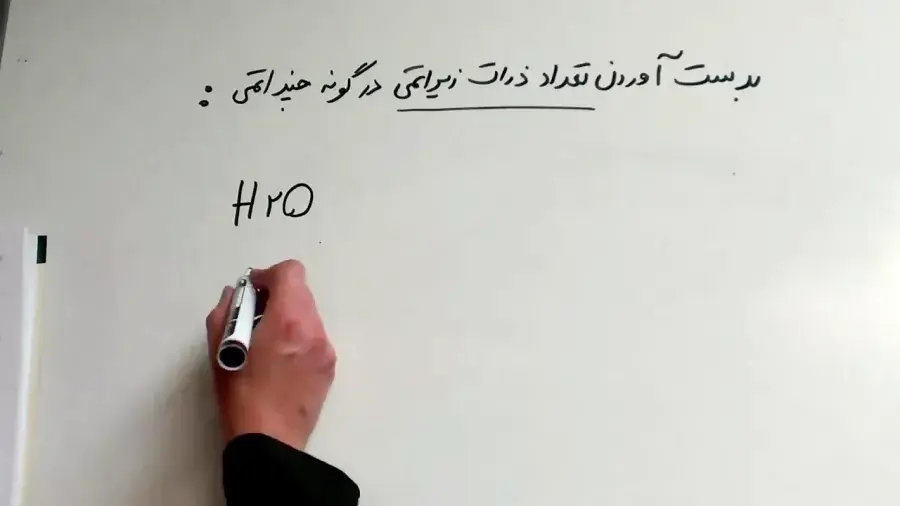 بدست آوردن تعداد ذرات زیراتمی در گونه چند اتمی :
H۲O